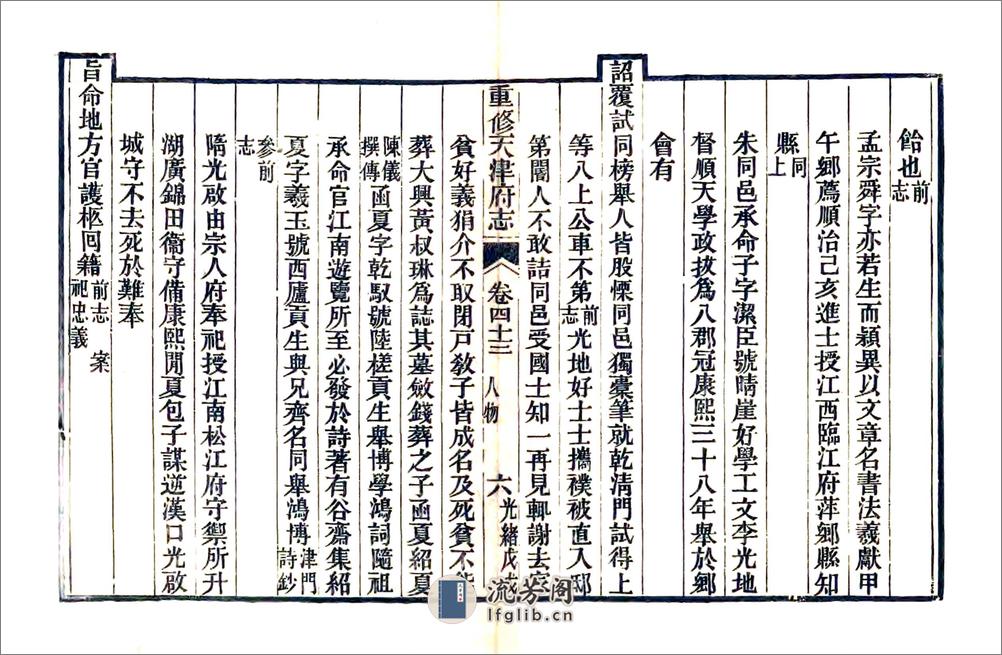 飴也前志
孟宗舜字亦若生而穎異以文章名書法義獻甲
午鄉薦順治己亥進士授江西臨江府萍鄉縣知
縣同上
朱同邑承命子字潔臣號晴崖好學工文李光地
督順天學政拔爲八郡冠康熙三十八年舉於鄉
會有
詔覆試同榜舉人皆股慄同邑獨橐筆就乾淸門試得上
等八上公車不第前志光地好士士攜襆被直入邸
第閽人不敢詰同邑受國士知一再見輒謝去家
重修天津府志 卷四十三 人物 六 光緒戊戌
貧好義狷介不取閉戸敎子皆成名及死貧不能
葬大興黃叔琳爲誌其墓斂錢葬之子函夏紹夏
陳儀撰傳函夏字乾馭號陸槎貢生舉博學鴻詞隨祖
承命官江南遊覽所至必發於詩著有谷齋集紹
夏字羲玉號西廬貢生與兄齊名同舉鴻博津門詩鈔
參前志
隋光啟由宗人府奉祀授江南松江府守禦所升
湖廣錦田衞守備康熙閒夏包子謀逆漢口光啟
城守不去死於難奉
旨命地方官護柩囘籍前志案祀忠義
流芳阁
lfglib.cn